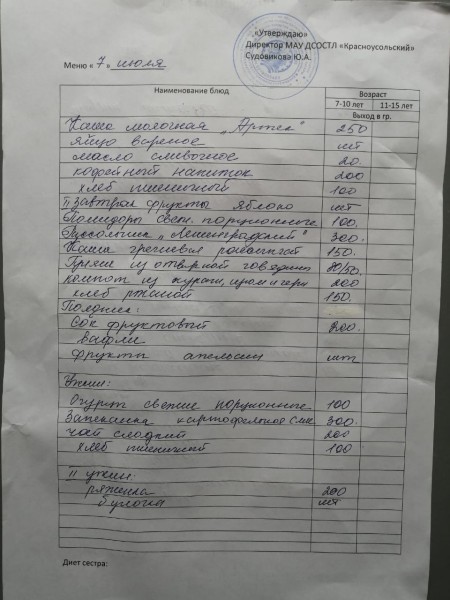 «Утверждаю»
Директор МАУ ДСОСТЛ «Красноусольский»
Судовикова Ю.А.
Меню « 7 » июля
Наименование блюд Возраст
7-10 лет 11-15 лет
Выход в гр.
Каша молочная „Артек" 250
яйцо вареное шт
масло сливочное 20
кофейный напиток 200
хлеб пшеничный 100
II завтрак фрукты яблоко шт
Помидоры свеж. порционные 100.
Рассольник „Ленинградский" 300.
Каша гречневая рассыпчатая 150.
из отварной говядины 80/50.
компот из кураги, изюм и черн 200
хлеб ржаной 150.
Полдник:
Сок фруктовый 200.
вафли
фрукты апельсин шт
Ужин:
Огурцы свежие порционные 100
Запеканка картофельная с мяс 300.
чай сладкий 200
хлеб пшеничный 100
II ужин:
ряженка 200
булочка шт
Диет сестра: